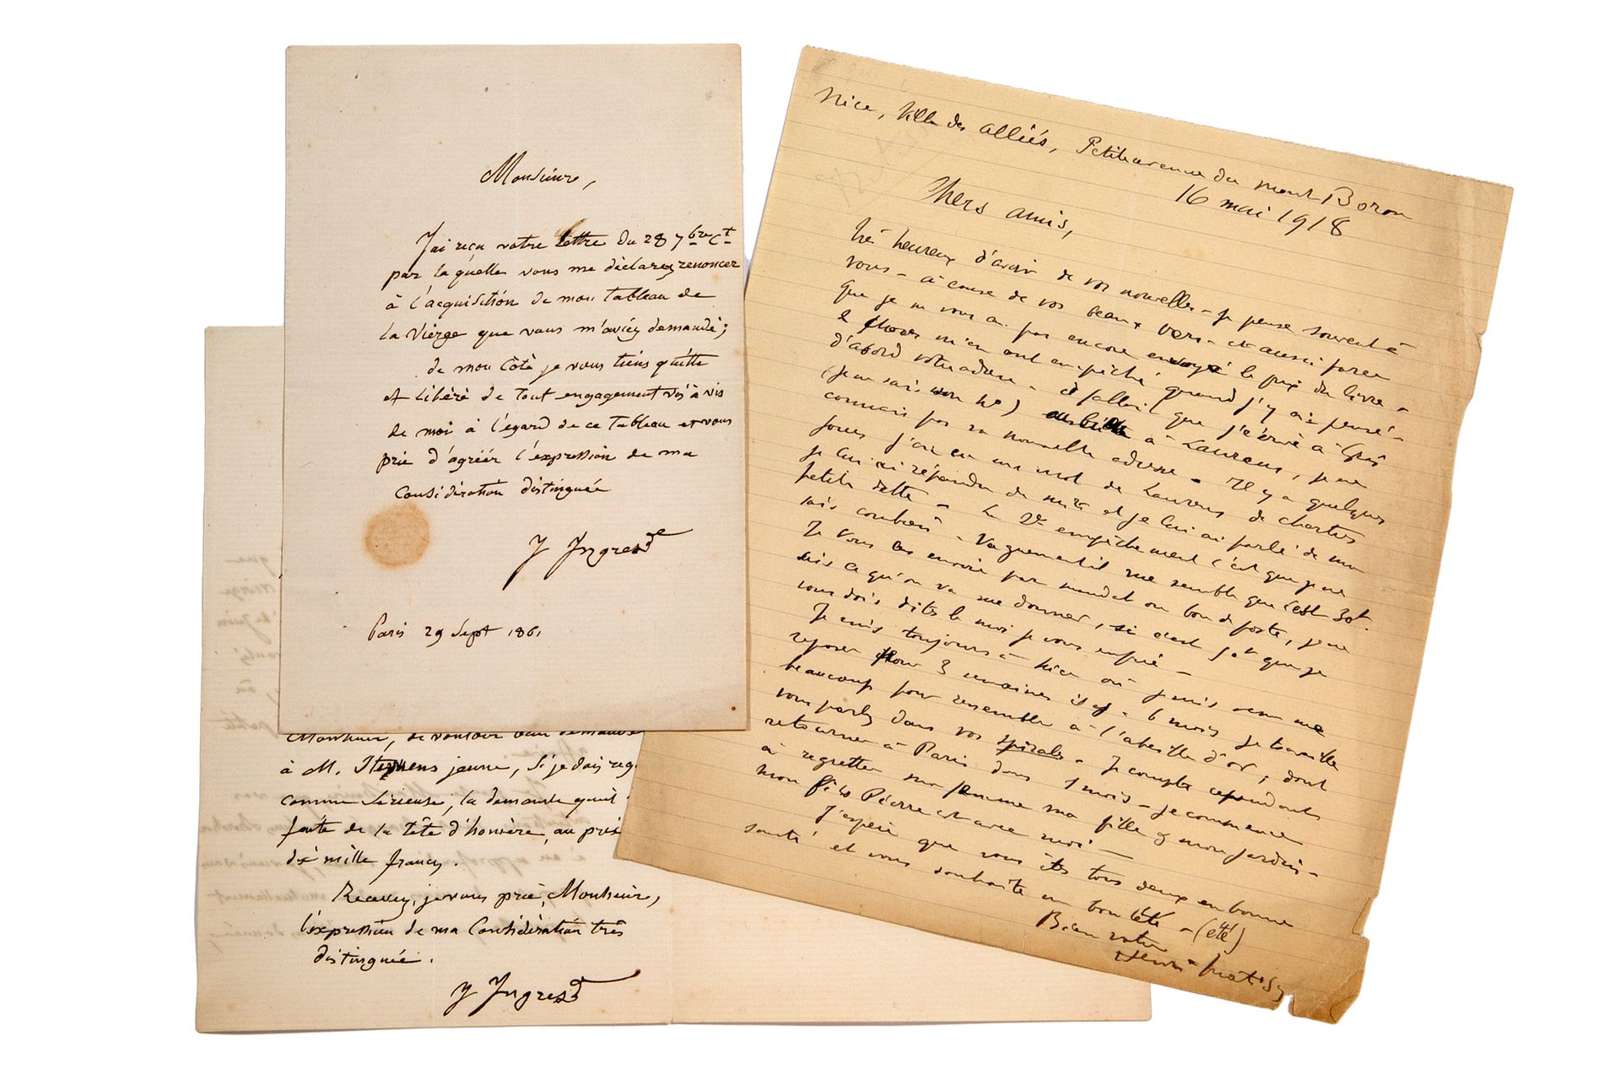 Monsieur,
J'ai reçu votre lettre du 28 7bre Ct
par la quelle vous me déclarez renoncer
à l'acquisition de mon tableau de
la Vierge que vous m'aviez demandé;
de mon côté je vous tiens quitte
et libéré de tout engagement vis à vis
de moi à l'égard de ce tableau et vous
prie d'agréér l'expression de ma
Considération distinguée
J Ingres
Paris 29 Sept 1861
Monsieur, de vouloir bien
à M. Stephens jeune, Si je dois
comme sérieuse, la demande qu'il
faite de la tête d'homère, au prix
dix mille francs.
Recevez, je vous prie, Monsieur,
l'expression de ma Considération très
distinguée.
J Ingres
Nice, Villa des Alliés, Petite avenue du Mont Boron
16 mai 1918
Chers amis,
Très heureux d'avoir de vos nouvelles - je pense souvent à
vous - à cause de vos beaux vers - et aussi parce
que je ne vous ai pas encore envoyé le prix du livre -
2 choses m'en ont empêché quand j'y ai pensé -
d'abord votre adresse - il fallait que j'écrive à Gris
(je ne sais son no) ou bien à Laurens, je ne
connais pas sa nouvelle adresse - Il y a quelques
jours j'ai eu un mot de Laurens de chartres
je lui ai répondu de suite et je lui ai parlé de ma
petite dette - Le 2e empêchement c'est que je ne
sais combien - Vaguement il me semble que c'est 30f.
Je vous les envoie par mandat ou bon de poste, je ne
sais ce qu'on va me donner, si c'est que je
vous dois dites le moi je vous en prie -
Je suis toujours à Nice où je suis venu me
reposer pour 3 semaines il y a 6 mois je travaille
beaucoup pour ressembler à l'abeille d'or, dont
vous parlez dans vos spirales - Je compte cependant
retourner à Paris dans 1 mois - je commence
à regretter ma femme ma fille & mon jardin -
mon fils Pierre est avec moi -
J'espère que vous êtes tous deux en bonne
santé et vous souhaite un bon été - (été)
Bien votre
Henri Matisse